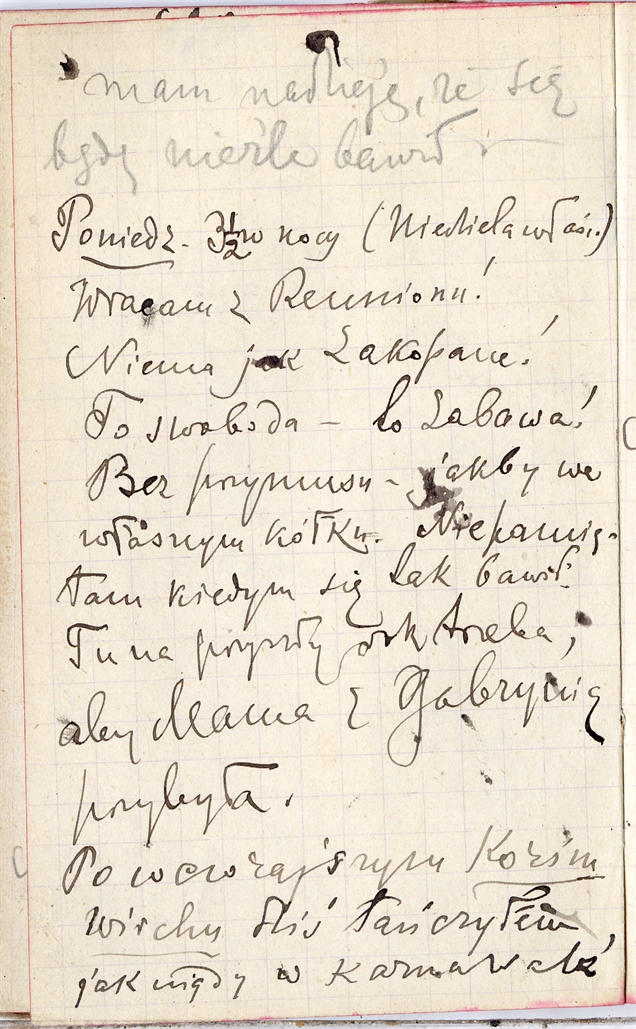 mam nadzieję, że się
będę nieźle bawił
Poniedz. 3½ w nocy (Niedziela właśc.)
Wracam z Reunionu!
Niema jak Zakopane!
To swoboda – to zabawa!
Bez przymusu – jakby we
własnym kółku. Niepamię-
tam kiedym się tak bawił.
Tu na przyszły rok trzeba,
aby Mama z Gabrynią
przybyła.
Po wczorajszym Kozim
Wirchu dziś tańczyłem
jak nigdy w karnawale